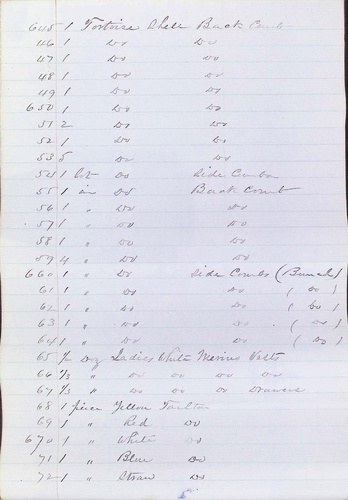 645 1 Tortoise Shell Back Comb
46 1 Do Do
47 1 Do Do
48 1 Do Do
49 1 Do Do
650 1 Do Do
51 2 Do Do
52 1 Do Do
53 5 Do Do
54 1 lot Do Side Combs
55 1 Do Back Comb
56 1 " Do Do
57 1 " Do Do
58 1 " Do Do
59 4 " Do Do
660 1 " Do Side Combs (
61 1 " Do Do ( Do )
62 1 " Do Do ( Do )
63 1 " Do Do ( Do )
64 1 " Do Do ( Do )
65 1/2 Doz Ladies White Merino Vests
66 1/3 " Do Do Do Do
67 1/3 " Do Do Do Drawers
68 1 piece Yellow
69 1 " Red Do
670 1 " White Do
71 1 " Blue Do
72 1 " Straw Do